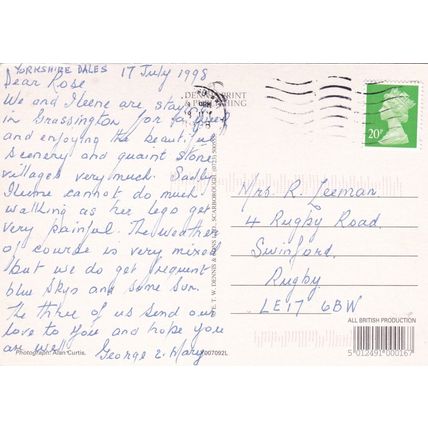 YORKSHIRE DALES 17 July 1998
Dear Rose
We and Ileene are stay
in Grassington for a week
and enjoying the beautiful
scenery and quaint stone
villages very much. Sadly
Ileene cannot do much
walking as her legs get
very painful. The weather
of course is very mixed
but we do get frequent
blue skies and some sun.
The three of us send our
love to you and hope you
are well. George & Mary
Photograph: Alan Curtis.
007092L
DENNIS PRINT
& PUBLISHING
E. T. W. DENNIS & SONS LTD., SCARBOROUGH
20P
Mrs. R. Leeman
4 Rugby Road
Swinford,
Rugby
LE17 6BW
ALL BRITISH PRODUCTION
5 012491 000167